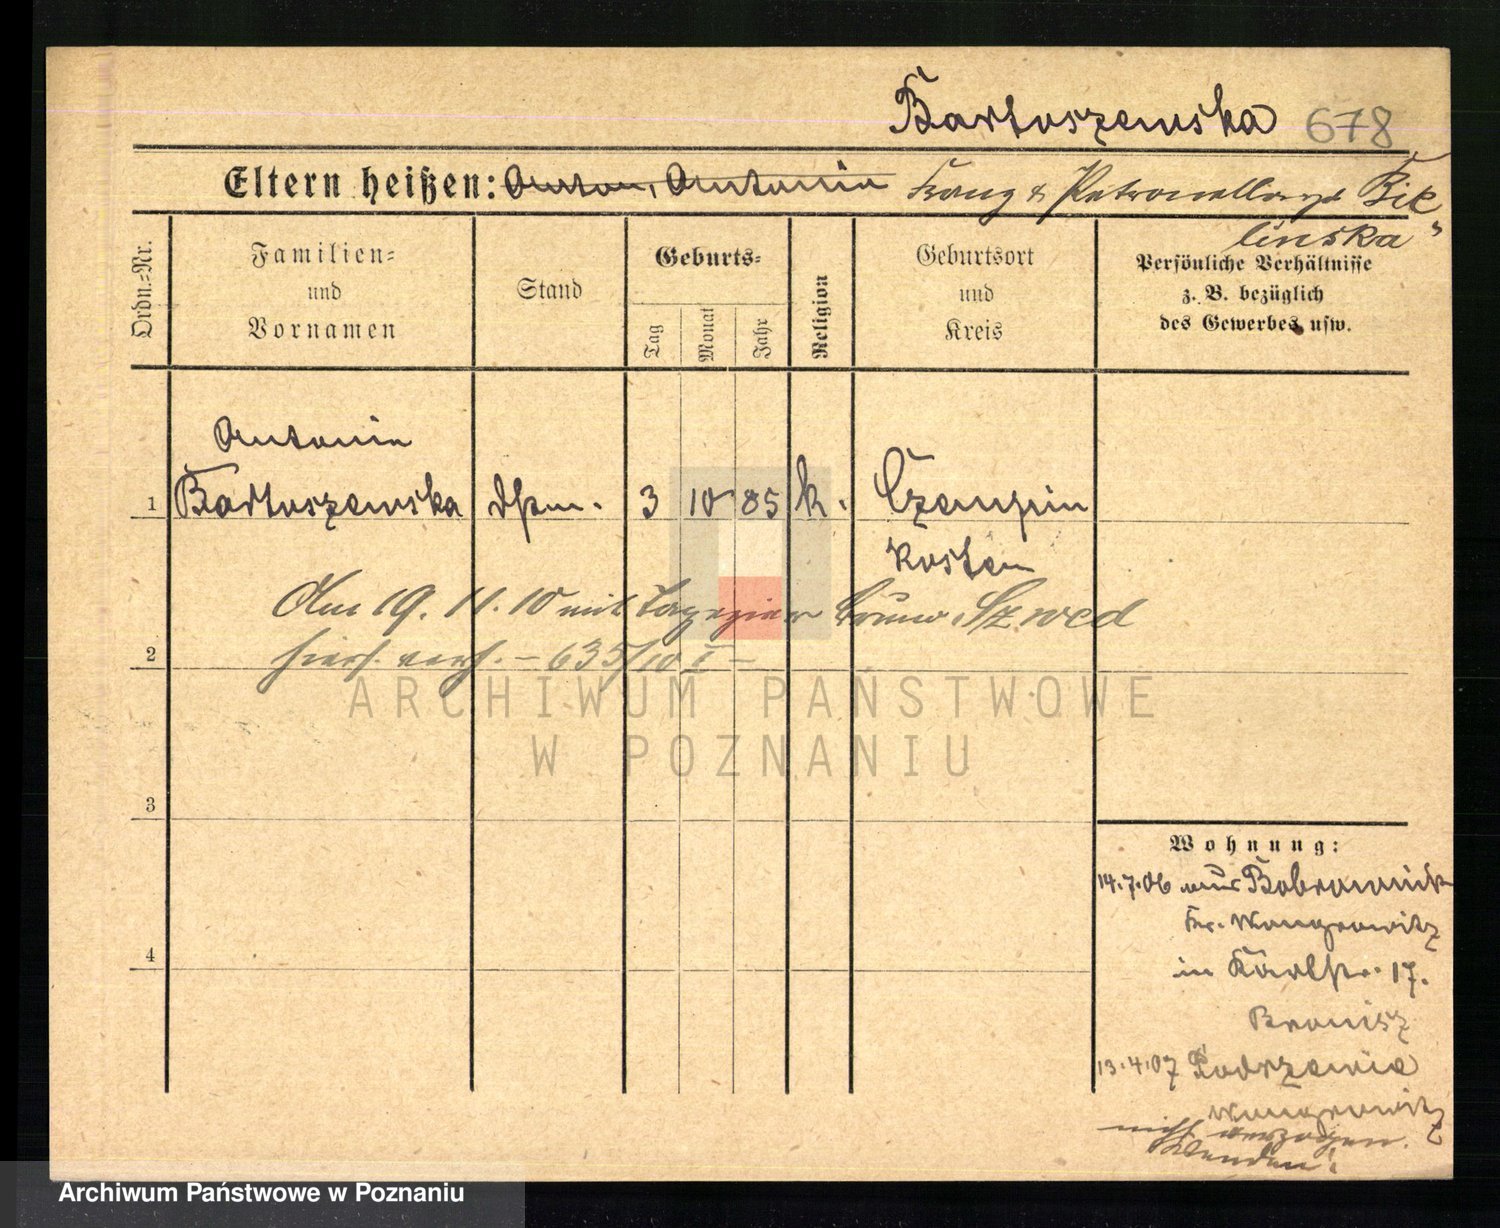 Bartoszewska 678
Eltern heißen: Anton, Antonia Franz & Petronella geb. Bik
linska
Ordn.-Nr.
Familien-
und
Vornamen
Stand
Geburts-
Tag
Monat
Jahr
Religion
Geburtsort
und
Kreis
Persönliche Verhältnisse
z. B. bezüglich
des Gewerbes usw.
Antonia
1 Bartoszewska 3 10 85 k. Czempin
Kosten
Am 19. 11. 10 mit Tapezier Bruno Szwed
2 hiers. verh. – 635/10 I –
3
4
ARCHIWUM PAŃSTWOWE
W POZNANIU
Wohnung:
14.7.06 aus Bobrownik
Kr. Wongrowitz
in Karlstr. 17.
Bronisz
13.4.07 Podrzewie
Wongrowitz
nicht verzogen.
Wenden!
Archiwum Państwowe w Poznaniu